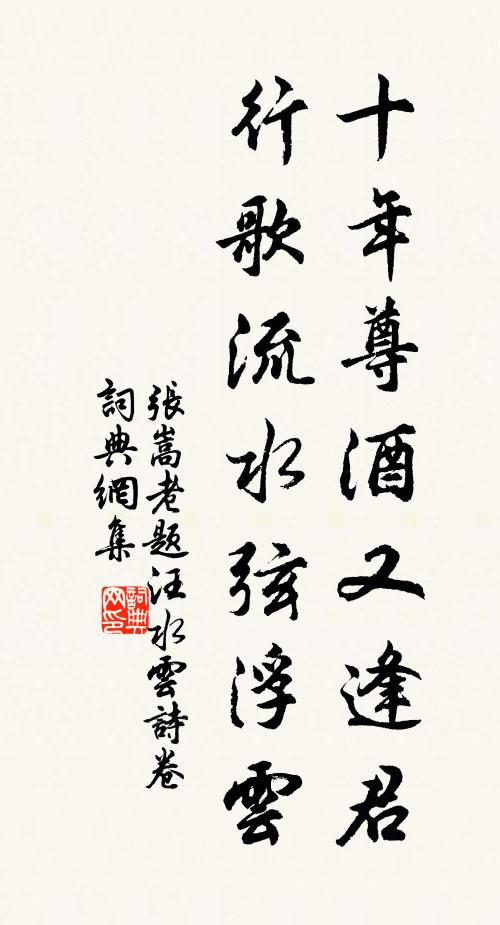 十年尊酒又逢君
行歌流水弦浮雲
張嵩老題汪水雲詩卷
詞典網集
詞典网印